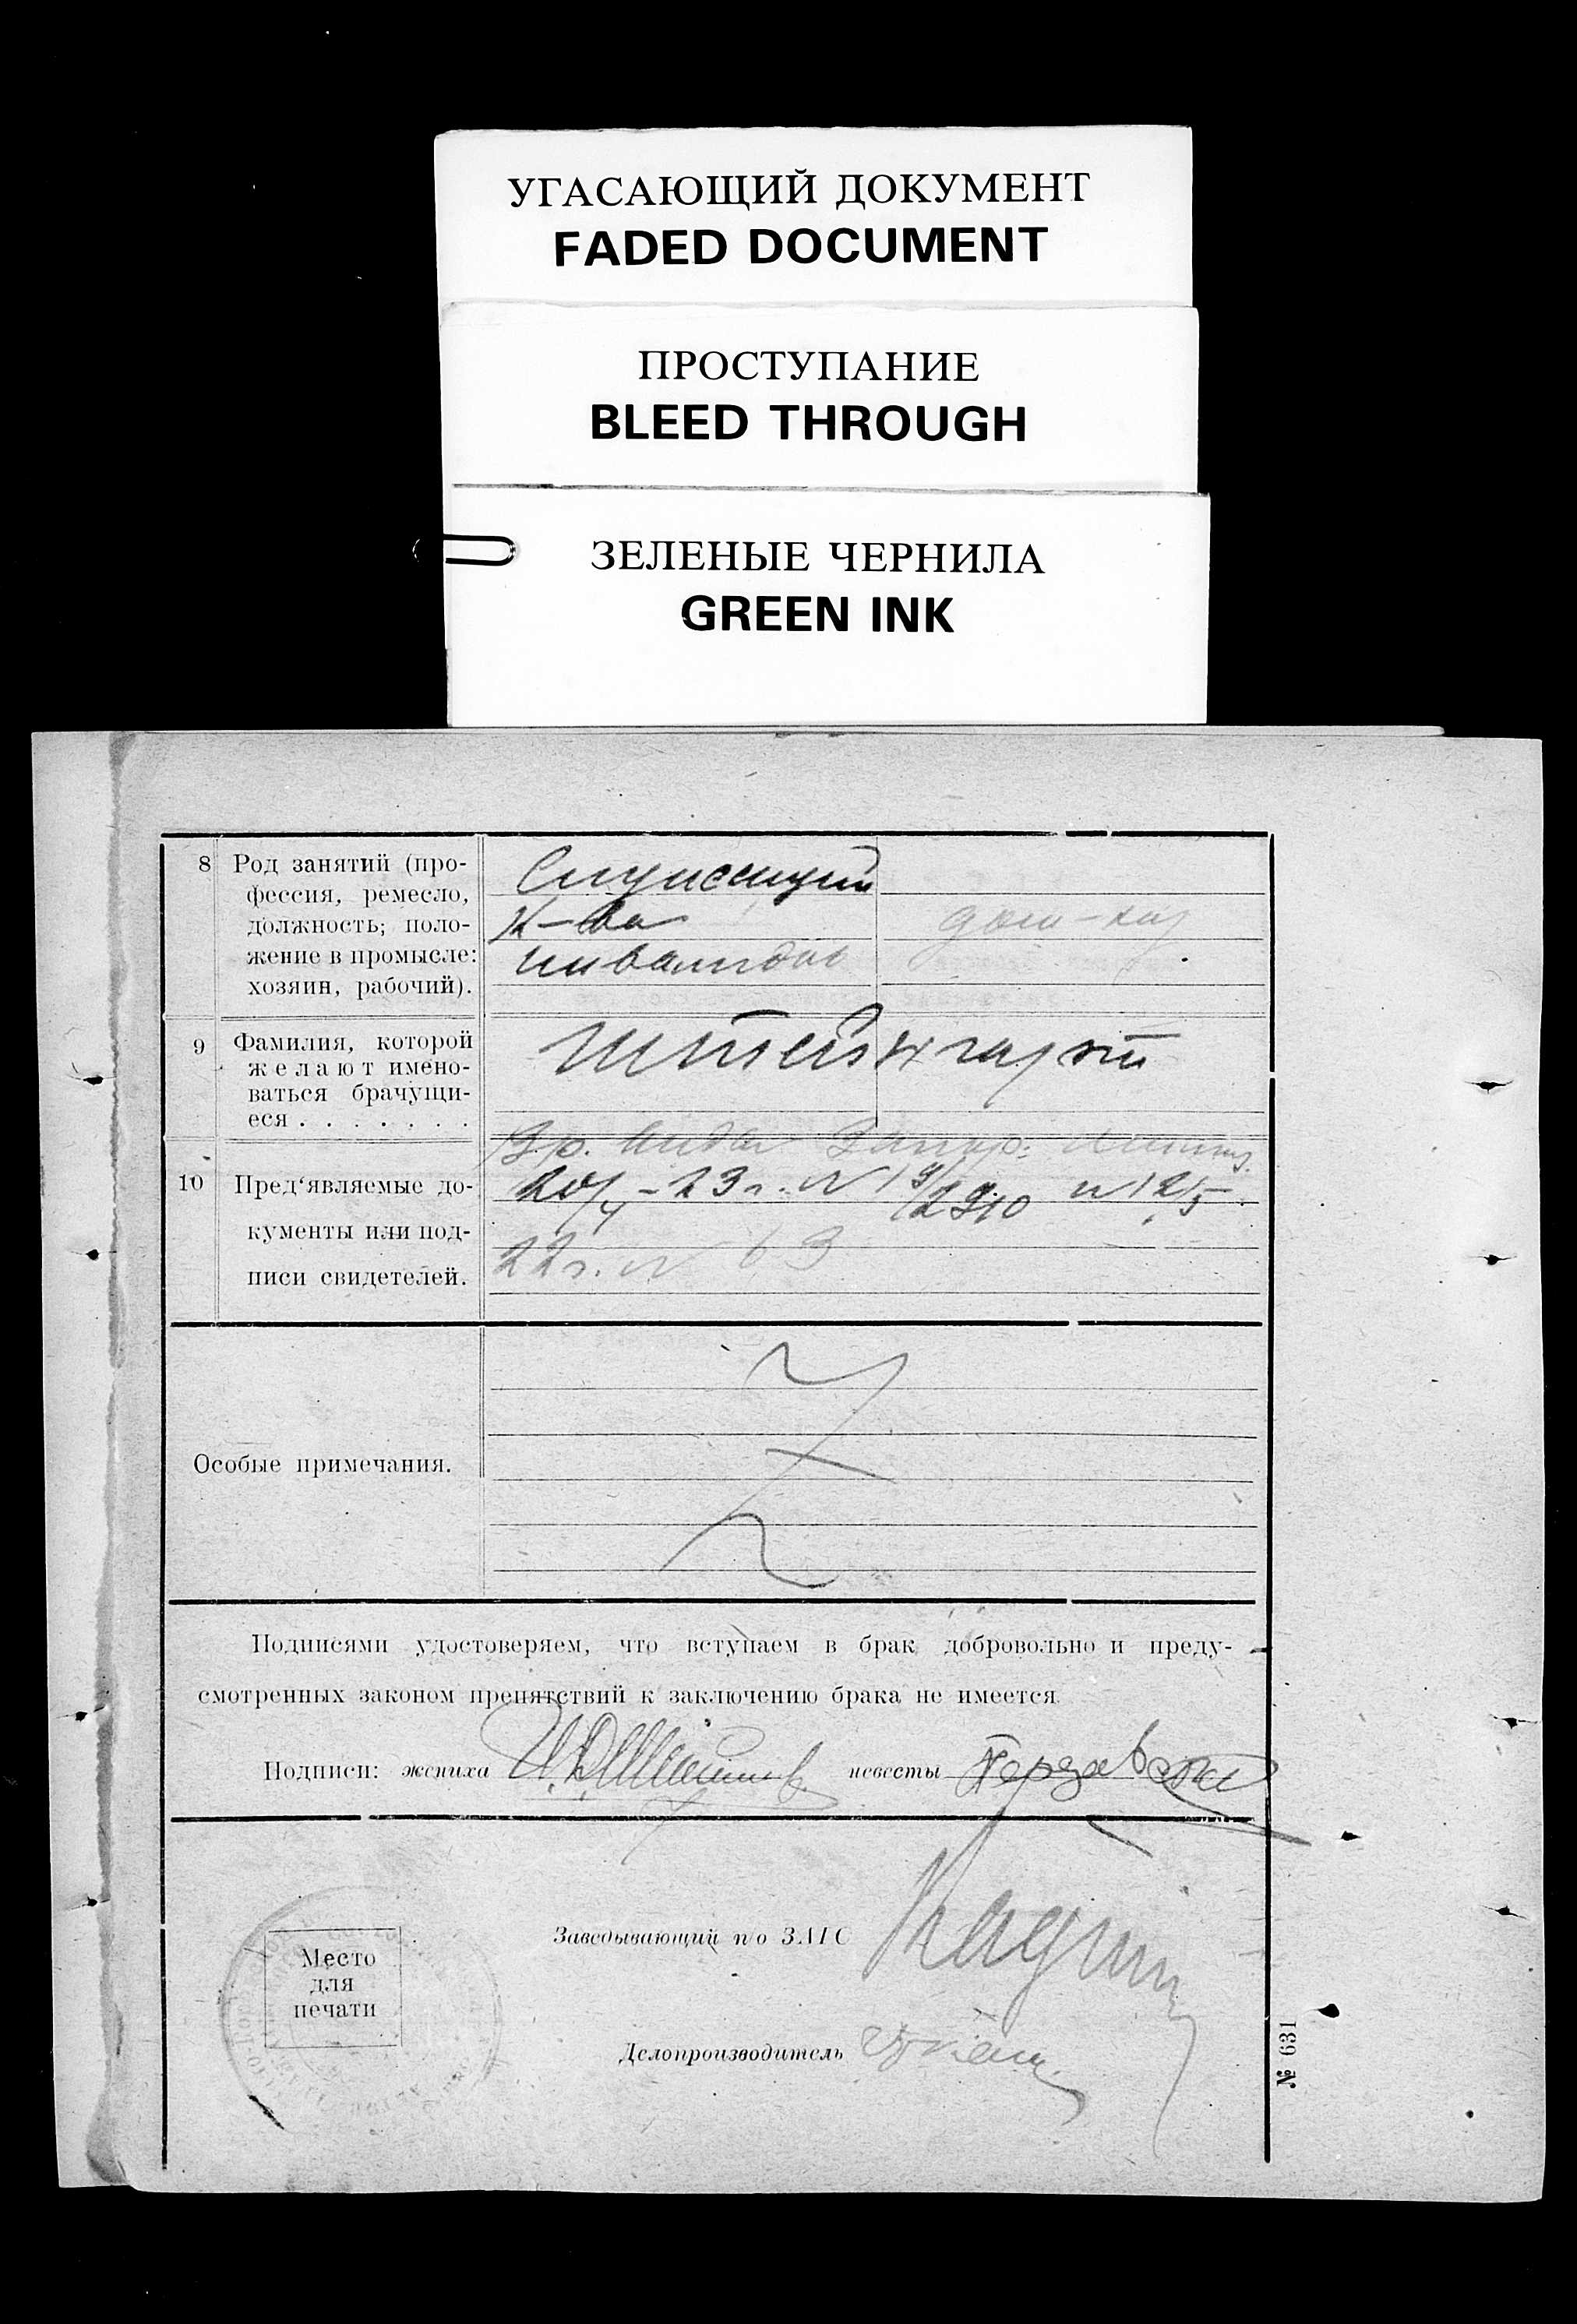 УГАСАЮЩИЙ ДОКУМЕНТ
FADED DOCUMENT
ПРОСТУПАНИЕ
BLEED THROUGH
ЗЕЛЕНЫЕ ЧЕРНИЛА
GREEN INK
8 Род занятий (про-
фессия, ремесло,
должность; поло-
жение в промысле:
хозяин, рабочий).
К-ва
инвалидов
дом-хоз
9 Фамилия, которой
желают имено-
ваться брачущи-
еся . . . . . . .
Штейнгардт
10 Пред‘являемые до-
кументы или под-
писи свидетелей.
20/4 - 23 г. № 19/2910 и 12/5
22 г. № 63
Особые примечания.
Подписями удостоверяем, что вступаем в брак добровольно и преду-
смотренных законом препятствий к заключению брака не имеется.
Подписи: жениха невесты
Место
для
печати
Заведывающий п/о ЗАГС
Делопроизводитель
№ 631